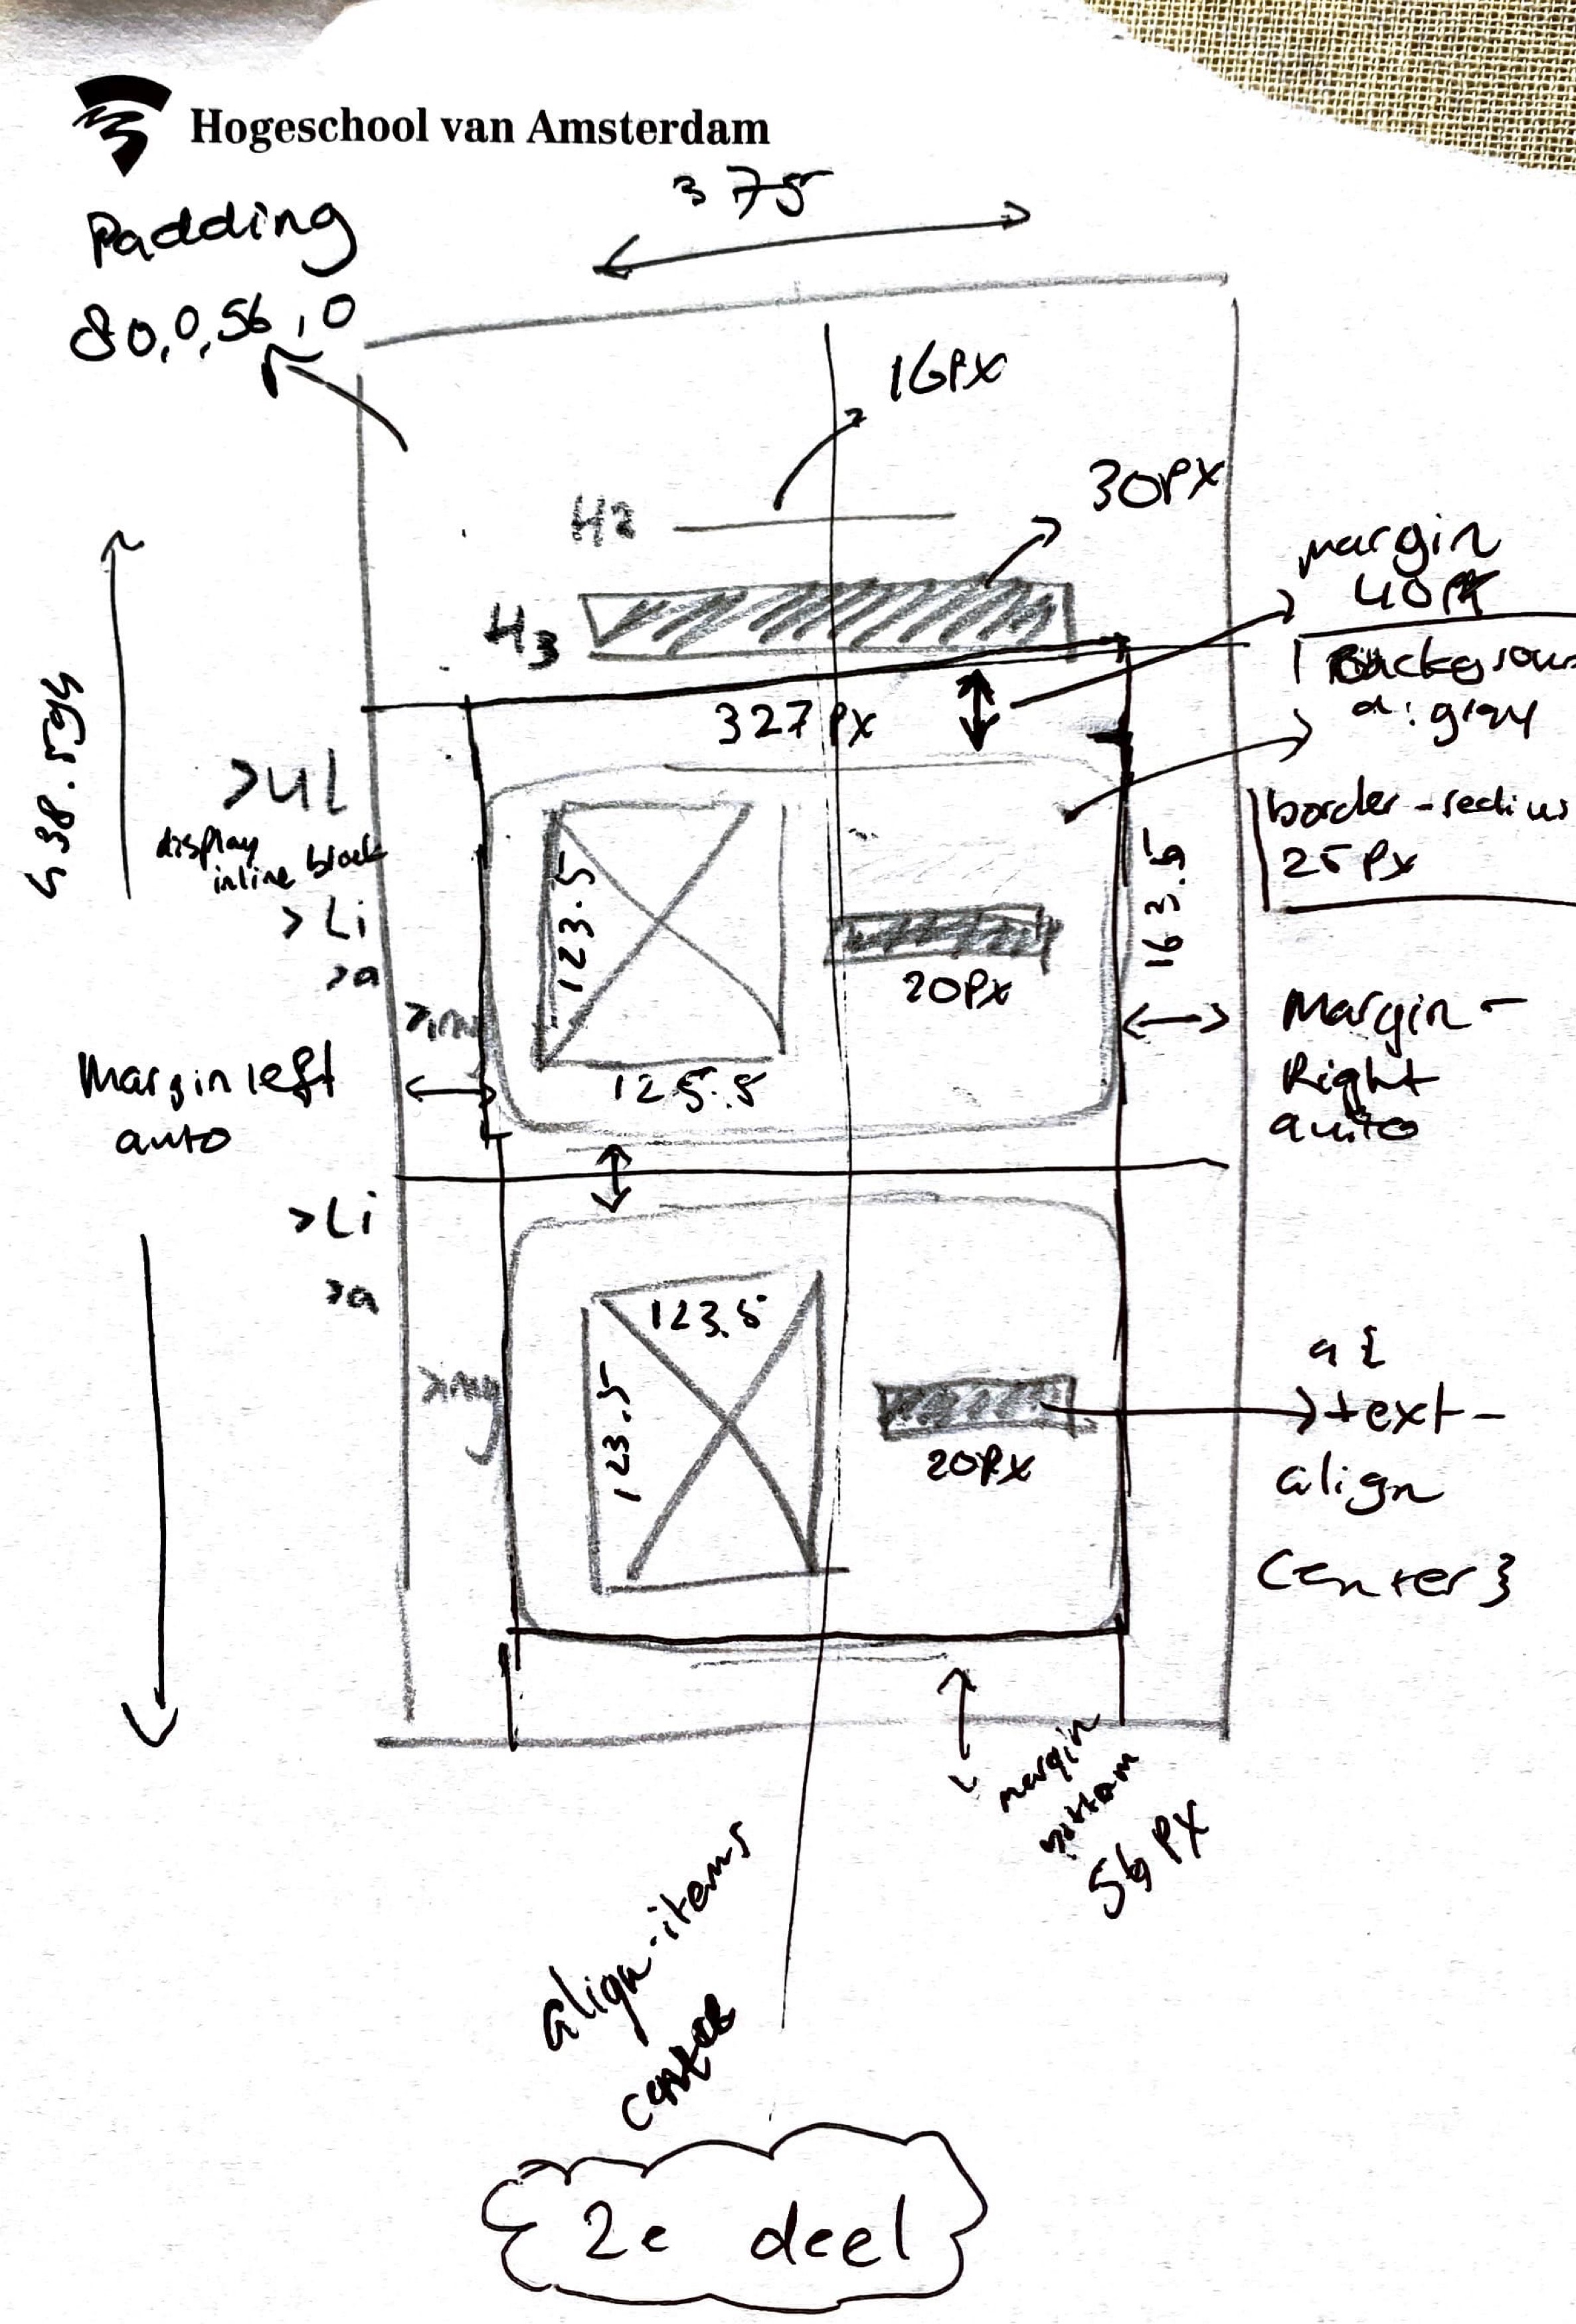 Hogeschool van Amsterdam
375
Padding
80,0,56,0
16PX
30PX
H2
H3
margin
40PX
a: gray
border-radius
25PX
327PX
>ul
display
inline block
>Li
>a
123.5
125.5
20PX
163.5
Margin left
auto
Margin-
Right
auto
>Li
>a
>img
123.5
123.5
20PX
a {
text-
align
center}
margin
bottom
56PX
align-items
center
2e deel